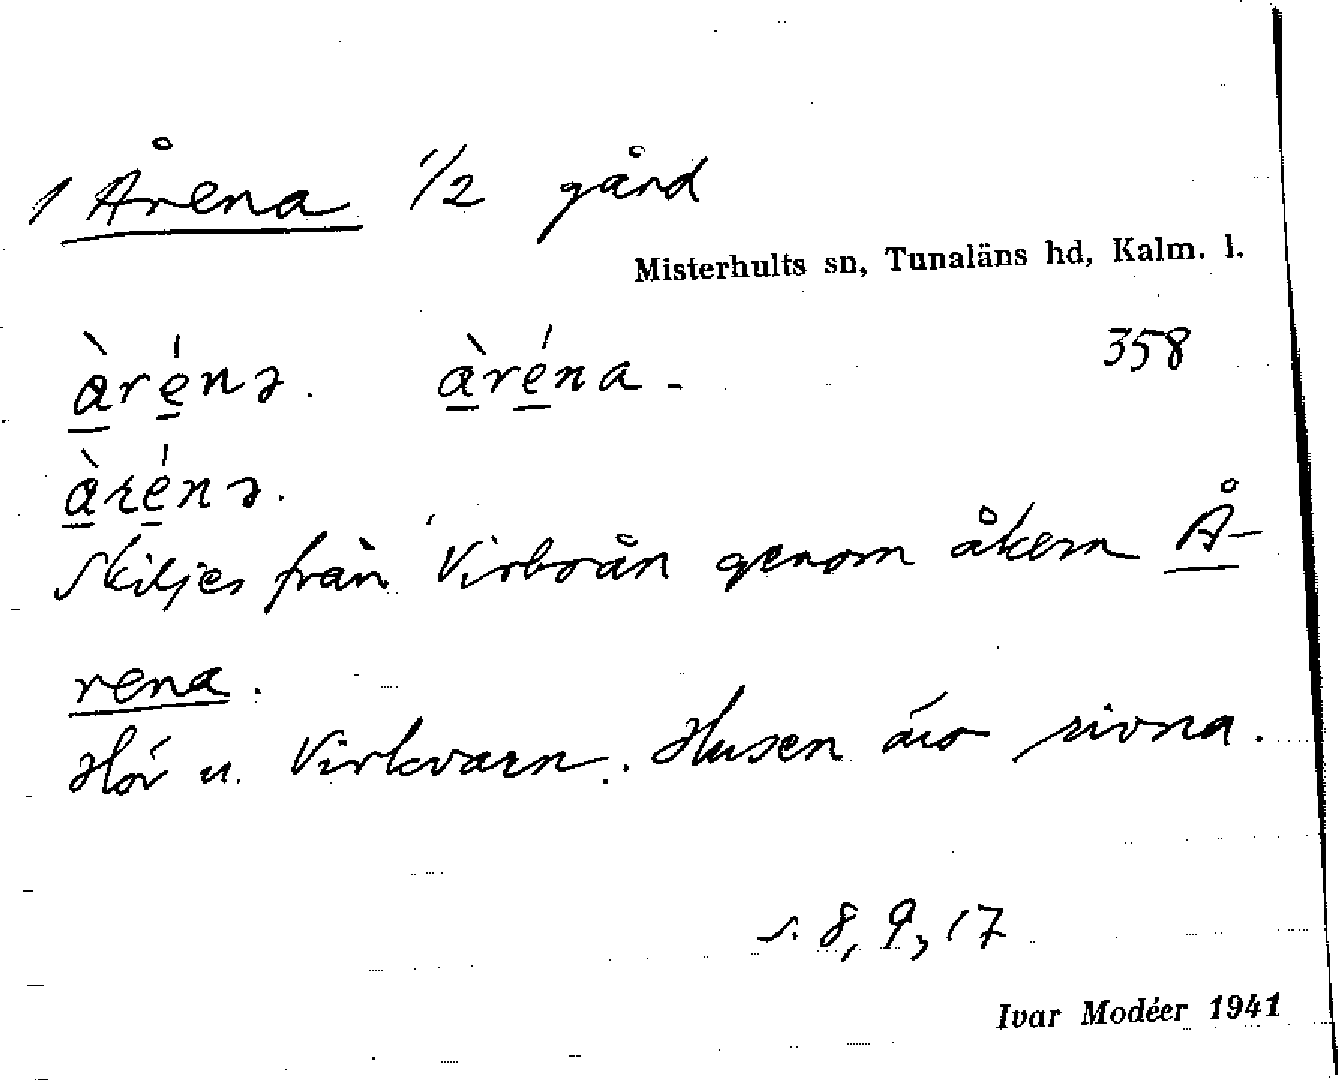 1 Årena 1/2 gård
Misterhults sn, Tunaläns hd, Kalm. l.
358
àrénə. àréna -
àrénə.
Skiljes från Virboån genom åkern Å-
rena.
Hör u. Virkvarn. Husen äro rivna.
s. 8, 9, 17
Ivar Modéer 1941